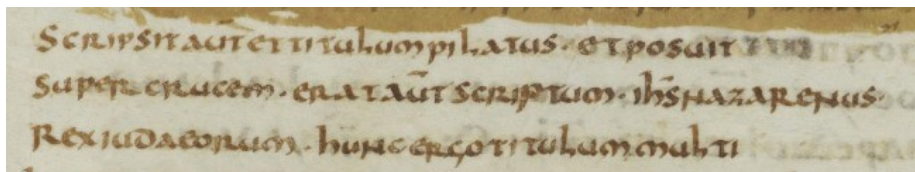 Scripsit aūt et titulum pilatus · et posuit
super crucem · erat aūt scriptum · ihs̄ nazarenus ·
Rex iudaeorum · hunc ergo titulum multi